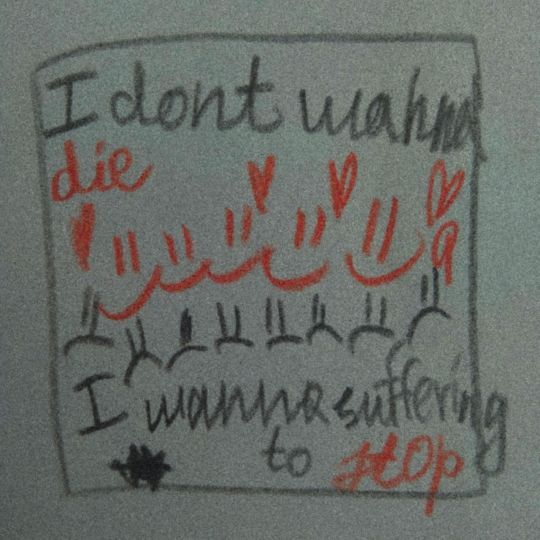 I dont wanna
die
I wanna suffering
to stop